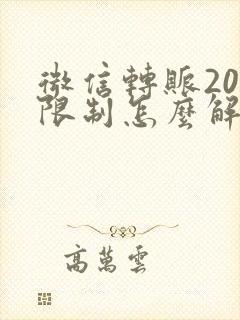 微信轉賬20
限制怎麼解
高萬雲